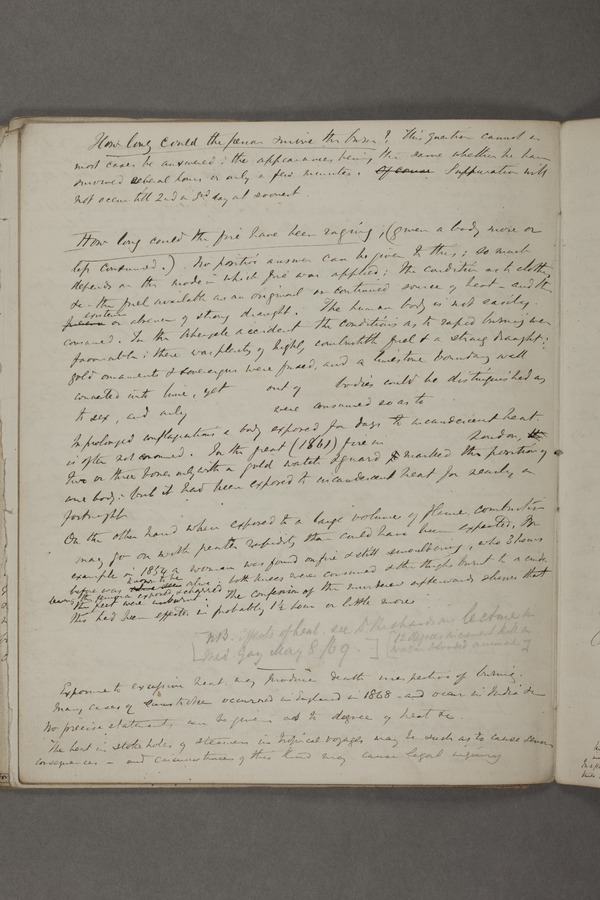 How long could the person survive the burn? This question cannot in
most cases be answered: the appearances being the same whether he have
survived several hours or only a few minutes. Of course Suppuration will
not occur till 2nd or 3rd day at soonest
How long could the fire have been raging; (given a body more or
less consumed.) No positive answer can be given to this; so much
depends on the mode in which fire was applied; the condition as to clothing
&c - the fuel available as an original or continued source of heat - and the
existence or absence of strong draught. The human body is not easily
consumed. In the Abergele accident the conditions as to rapid burning were
favourable: there was plenty of highly combustible fuel & a strong draught:
gold ornaments & sovereigns were fused, and a limestone boundary wall
converted into lime, yet out of bodies could be distinguished as
to sex, and only were consumed so as to
In prolonged conflagrations a body exposed for days to incandescent heat
is often not consumed. In the great (1861) fire in London,
two or three bones only with a gold watch & guard marked the position of
one body:- but it had been exposed to incandescent heat for nearly a
fortnight
On the other hand when exposed to a large volume of flame combustion
may go on with greater rapidity than could have been expected, for
example in 1854 a woman was found on fire & still smouldering, who 3 hours
before was known to be alive: both knees were consumed & the thighs burnt to a cinder
leaving the femora exposed & charred
the feet were unburnt. The confession of the murderer afterwards shewed that
this had been effected in probably 1½ hour or little more
[NB. Effects of heat. see Dr Richardson's lecture in
Med. Gaz May 8/69.]
Exposure to excessive heat may produce death irrespective of burning.
Many cases of sunstroke occurred in England in 1868 - and occur in India &c
No precise statements can be given as to degree of heat &c.
The heat in stoke holes of steamers in tropical voyages may be such as to cause serious
consequences - and circumstances of this kind may cause legal inquiry